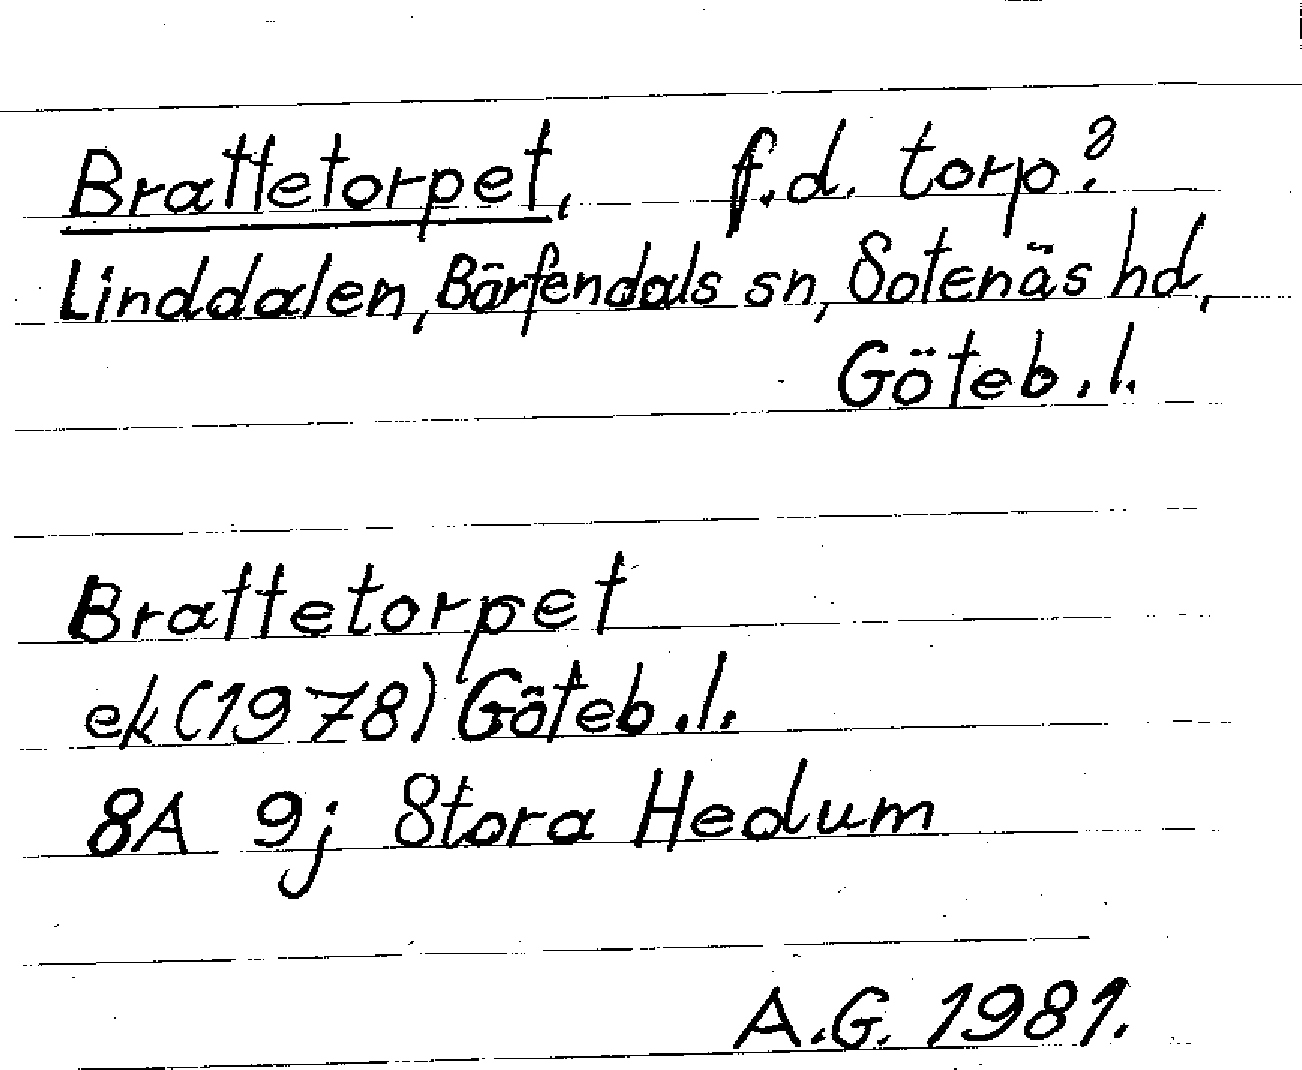 Brattetorpet, f.d. torp?
Linddalen, Bärfendals sn, Sotenäs hd,
Göteb.l.
Brattetorpet
ek (1978) Göteb.l.
8A 9j Stora Hedum
A.G. 1981.